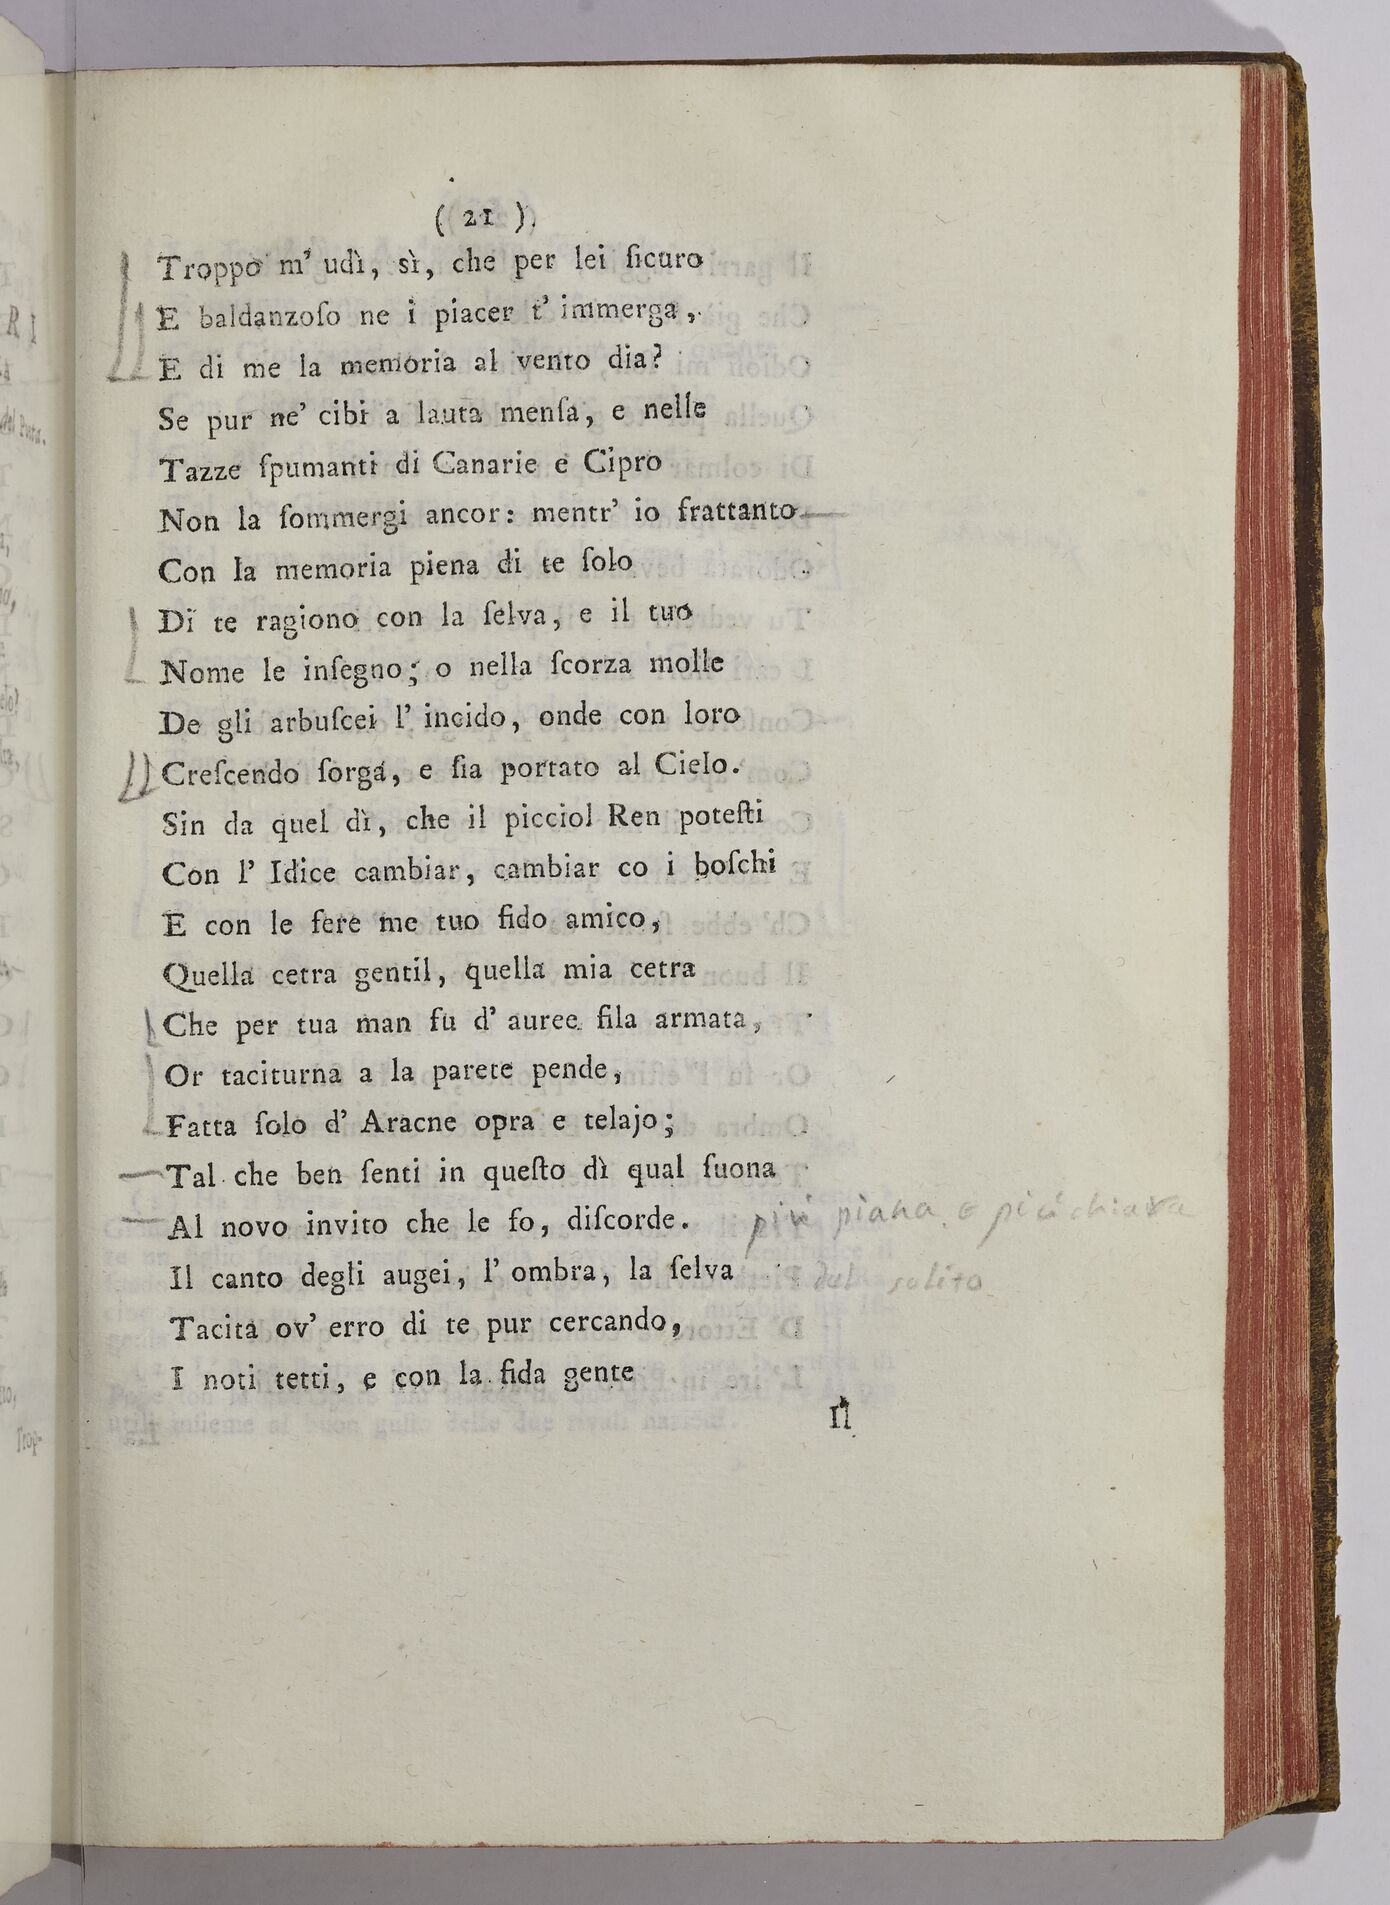 ( 21 ).
Troppo m' udì, sì, che per lei ſicuro
E baldanzoſo ne i piacer t' immerga,
E di me la memoria al vento dia?
Se pur ne' cibi a lauta menſa, e nelle
Tazze ſpumanti di Canarie e Cipro
Non la ſommergi ancor: mentr' io frattanto
Con la memoria piena di te ſolo
Di te ragiono con la ſelva, e il tuo
Nome le inſegno; o nella ſcorza molle
De gli arbuſcei l' incido, onde con loro
Creſcendo ſorga, e ſia portato al Cielo.
Sin da quel dì, che il picciol Ren poteſti
Con l' Idice cambiar, cambiar co i boſchi
E con le fere me tuo fido amico,
Quella cetra gentil, quella mia cetra
Che per tua man fu d' auree fila armata,
Or taciturna a la parete pende,
Fatta ſolo d' Aracne opra e telajo;
Tal che ben ſenti in queſto dì qual ſuona
Al novo invito che le fo, diſcorde.
più piana e più chiara
Il canto degli augei, l' ombra, la ſelva
del solito
Tacita ov' erro di te pur cercando,
I noti tetti, e con la fida gente
Il